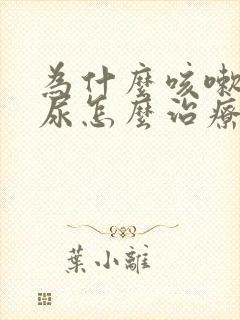 為什麼咳嗽
尿怎麼治療
葉小離